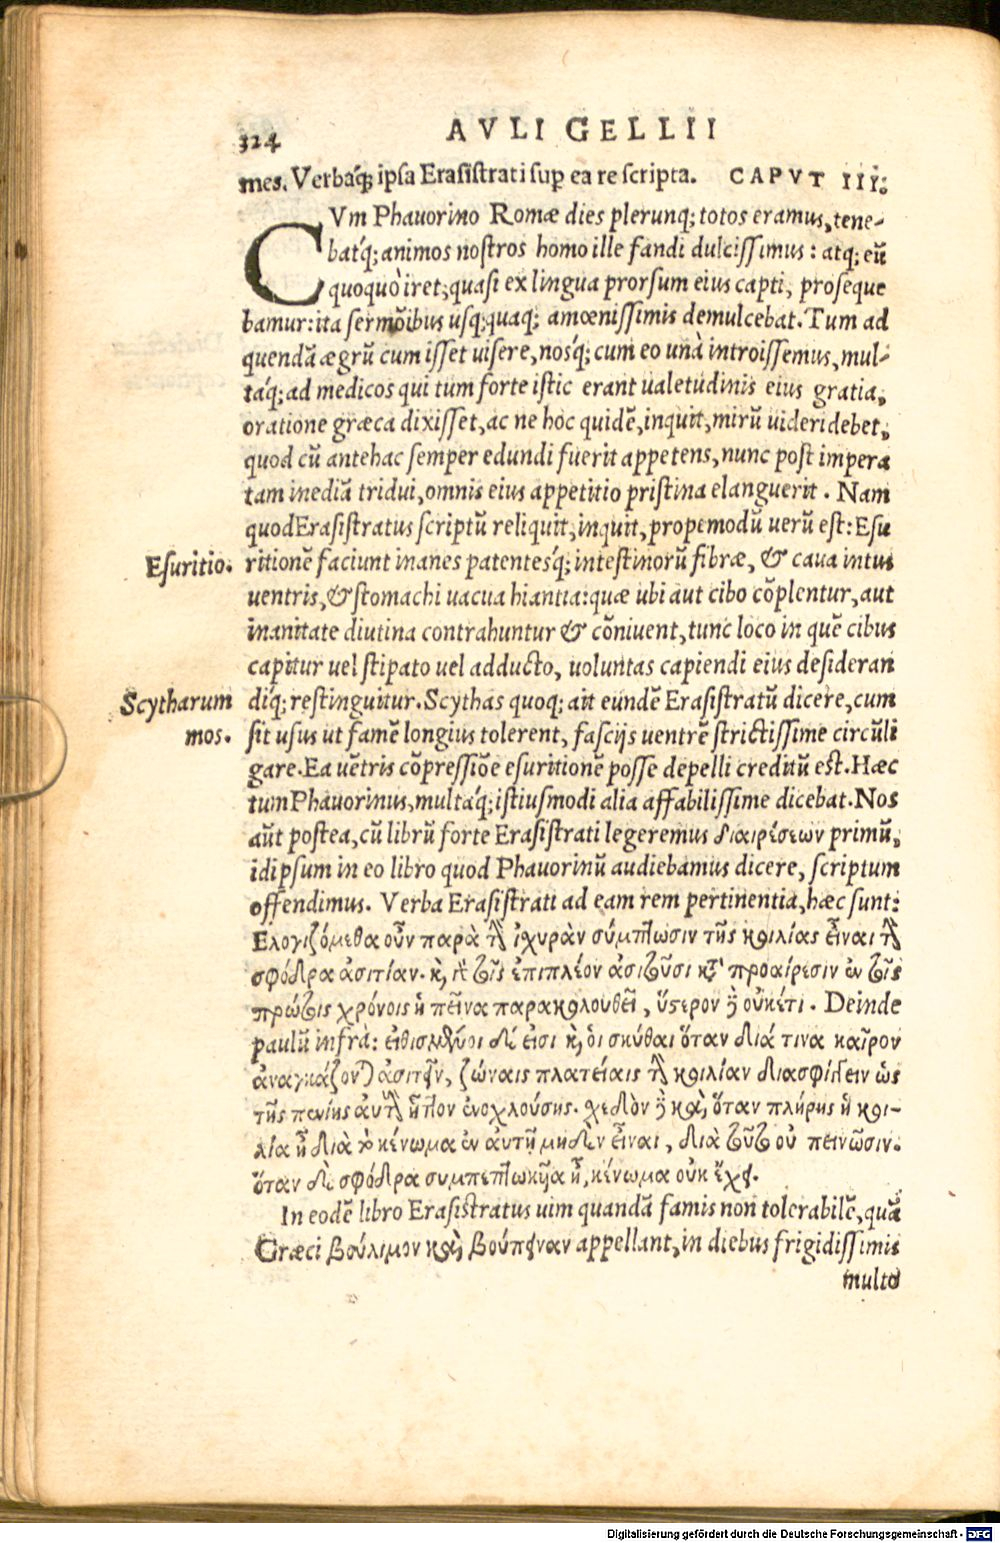 324
AVLI GELLII
mes. Verbáq; ipsa Erasistrati sup ea re scripta. CAPVT III.
CVm Phauorino Romæ dies plerunq; totos eramus, tene-
batq́; animos nostros homo ille fandi dulcissimus: atq; eũ
quoquò iret, quasi ex lingua prorsum eius capti, proseque
bamur: ita sermõibus usq;quaq; amœnissimis demulcebat. Tum ad
quendã ægrũ cum isset uisere, nosq́; cum eo unà introissemus, mul-
taq́; ad medicos qui tum forte istic erant ualetudinis eius gratia,
oratione græca dixisset, ac ne hoc quidẽ, inquit, mirũ uideri debet,
quod cũ antehac semper edundi fuerit appetens, nunc post impera
tam inediã tridui, omnis eius appetitio pristina elanguerit. Nam
quod Erasistratus scriptũ reliquit, inquit, propemodũ uerũ est: Esu
Esuritio.
ritionẽ faciunt inanes patentesq́; intestinorũ fibræ, & caua intus
uentris, & stomachi uacua hiantia: quæ ubi aut cibo cõplentur, aut
inanitate diutina contrahuntur & cõniuent, tunc loco in quẽ cibus
capitur uel stipato uel adducto, uoluntas capiendi eius desideran
Scytharum
mos.
diq́; restinguitur. Scythas quoq; ait eundẽ Erasistratũ dicere, cum
sit usus ut famẽ longius tolerent, fascijs uentrẽ strictissime circũli
gare. Ea uẽtris cõpressiõe esuritionẽ posse depelli creditũ est. Hæc
tum Phauorinus, multaq́; istiusmodi alia affabilissime dicebat. Nos
aũt postea, cũ librũ forte Erasistrati legeremus διαιρέσεων primũ,
id ipsum in eo libro quod Phauorinũ audiebamus dicere, scriptum
offendimus. Verba Erasistrati ad eam rem pertinentia, hæc sunt:
Ελογιζόμεθα οὖν παρὰ τὴν ἰχυρὰν σύμπτωσιν τῆς κοιλίας εἶναι τὴν
σφόδρα ἀσιτίαν. καὶ γὰ τοῖς ἐπιπλέον ἀσιτοῦσι κατὰ προαίρεσιν ἐν τοῖς
πρώτοις χρόνοις ἡ πεῖνα παρακολουθεῖ, ὕστερον δὲ οὐκέτι. Deinde
paulũ infrà: εἰθισμένοι δέ εἰσι καὶ οἱ σκύθαι ὅταν διά τινα καῖρον
ἀναγκάζονται ἀσιτεῖν, ζώναις πλατείαις τὴν κοιλίαν διασφίγγειν ὡς
τῆς πείνης αὐτὴν ἧττον ἐνοχλούσης. χεδὸν δὲ καὶ ὅταν πλήρης ἡ κοι-
λία ᾖ διὰ τὸ κένωμα ἐν αὐτῇ μηδὲν εἶναι, διὰ τοῦτο οὐ πεινῶσιν.
ὅταν δὲ σφόδρα συμπεπτωκυῖα ᾖ, κένωμα οὐκ ἔχει.
In eodẽ libro Erasistratus uim quandã famis non tolerabilẽ, quã
Græci βούλιμον καὶ βούπειναν appellant, in diebus frigidissimis
multo
Digitalisierung gefördert durch die Deutsche Forschungsgemeinschaft - DFG